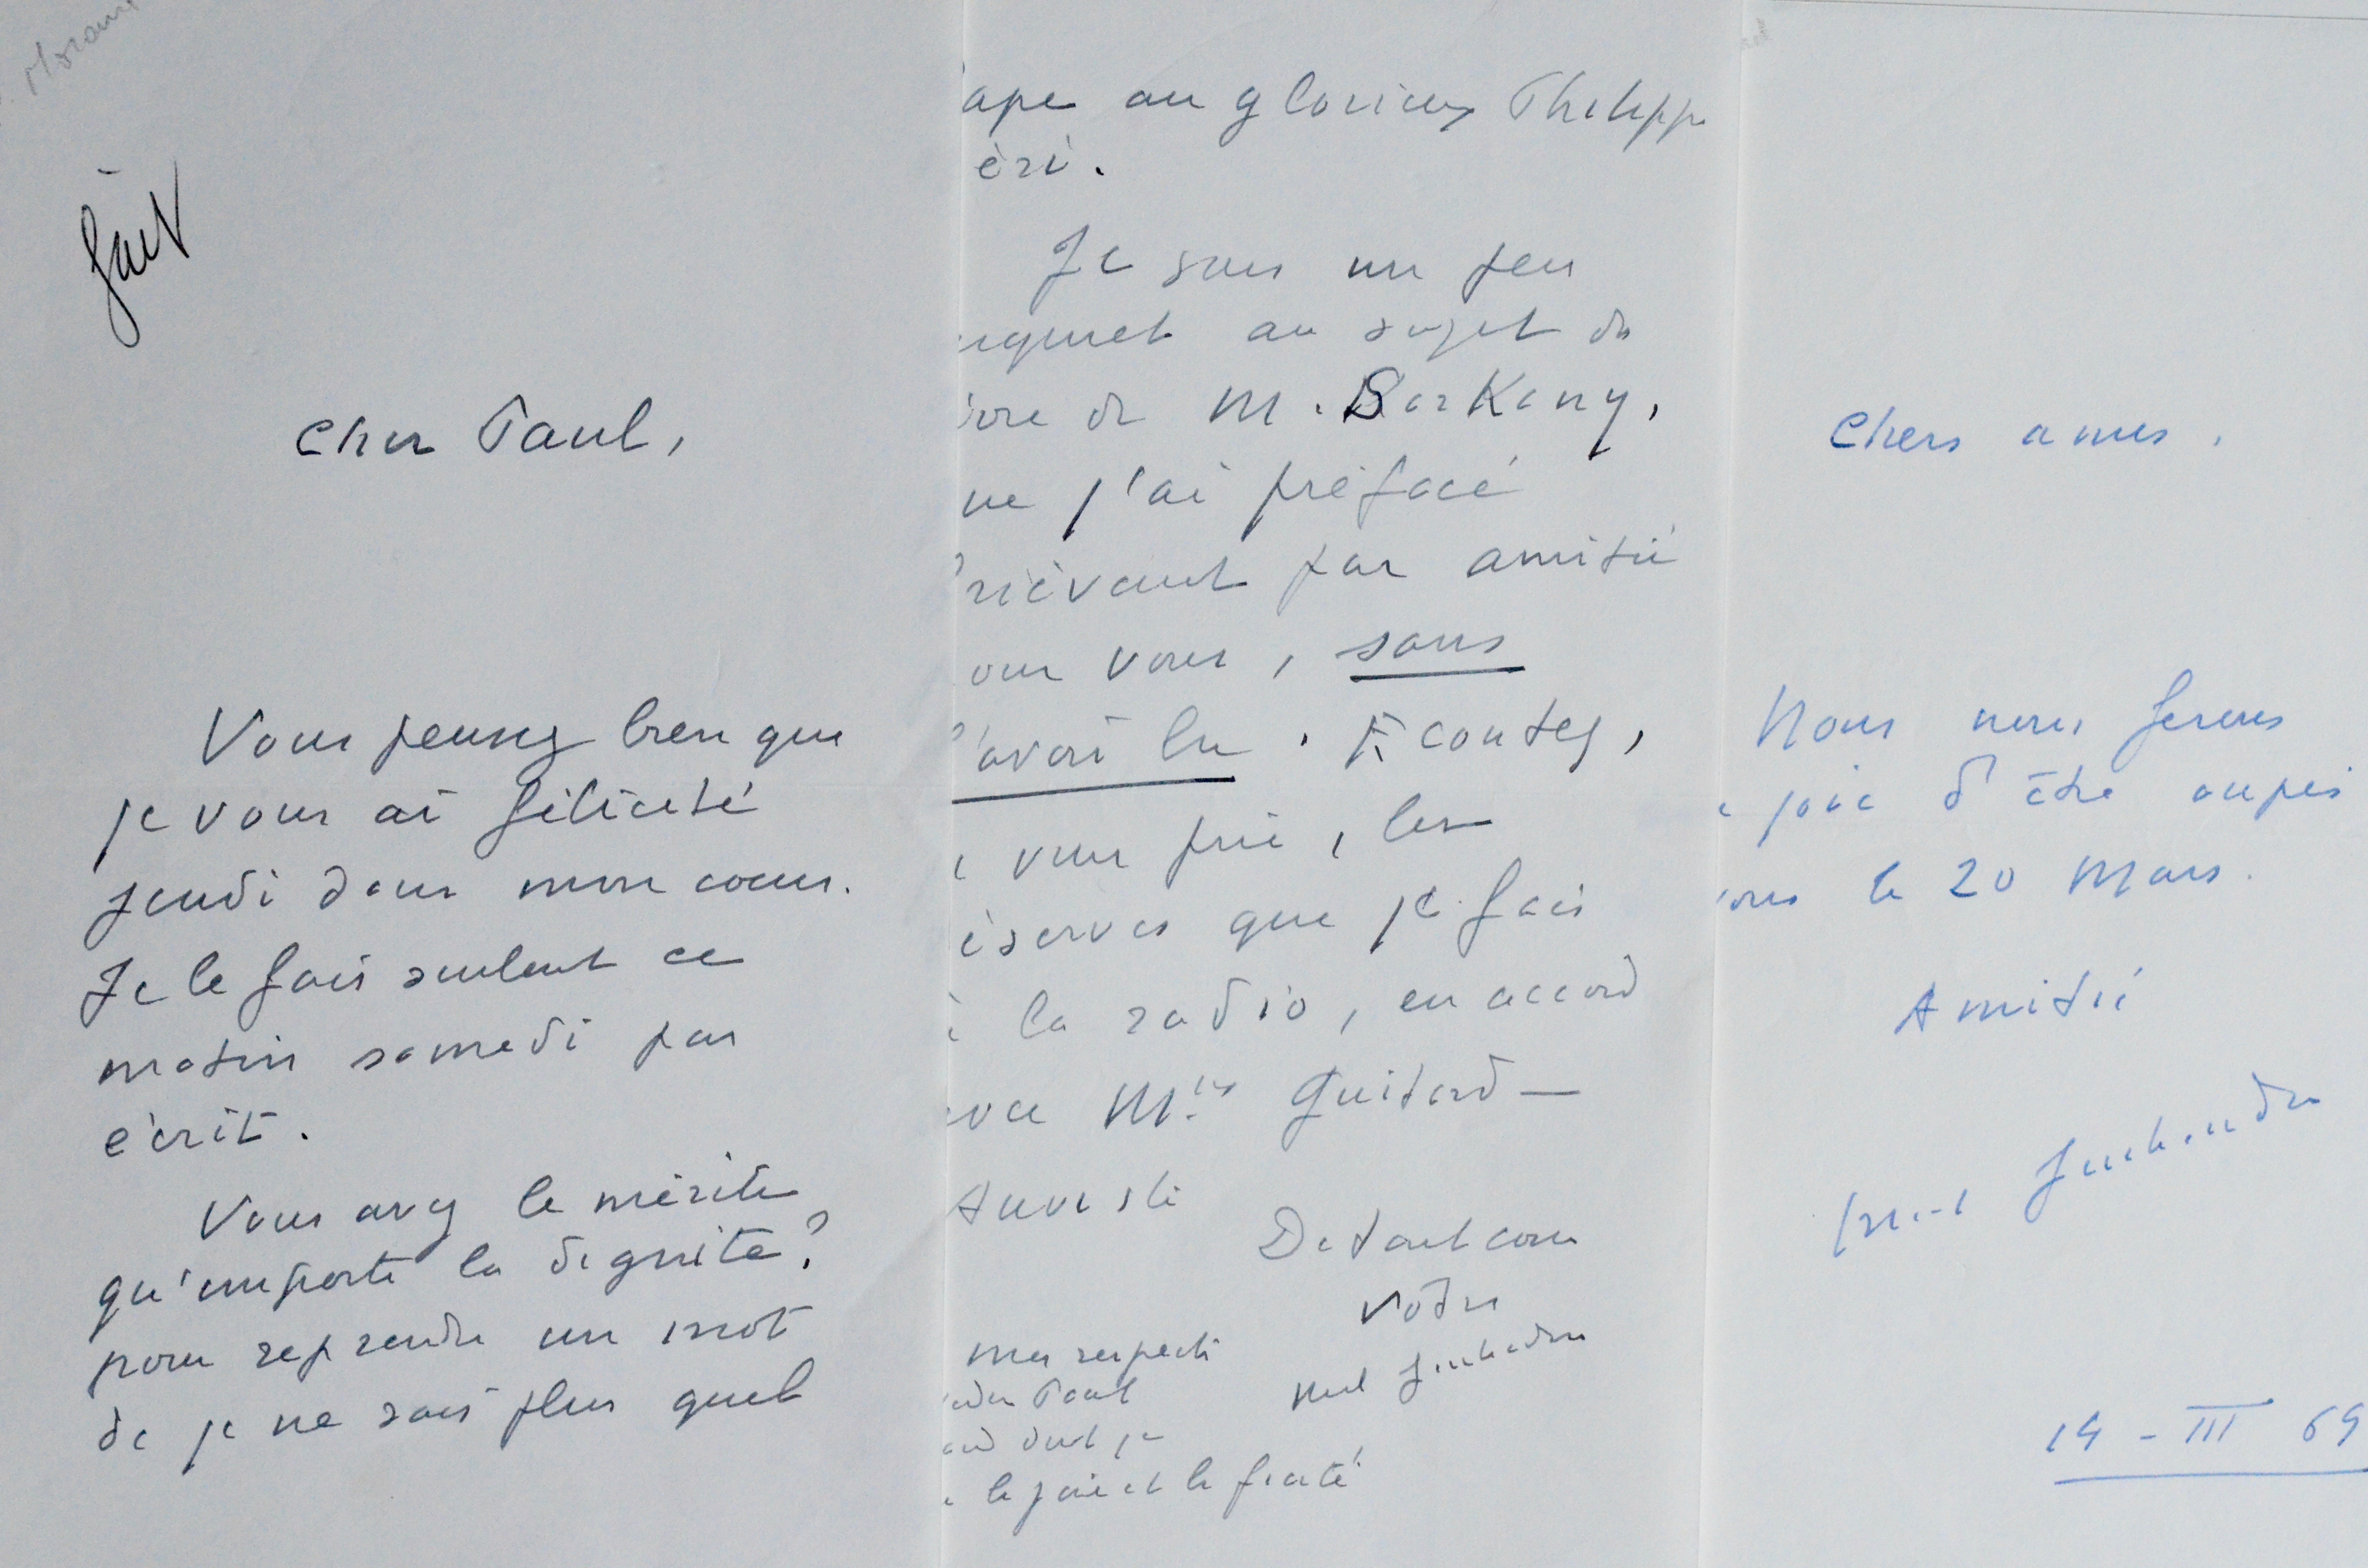 Morand
fait
Cher Paul,
Vous pensez bien que
je vous ai félicité
jeudi dans mon coeur.
Je le fais seulent ce
matin samedi par
écrit.
Vous avez le mérite
qu'importe la dignité?
pour reprendre un mot
de je ne sais plus quel
ape au glorieux Philippe
éri.
Je suis un peu
nquiet au sujet du
ivre de M. Barkany,
ue j'ai préfacé
rièvemt par amitié
our vous, sans
l'avoir lu. Ecoutez,
e vous prie, les
éserves que je fais
à la radio, en accord
vec Mlle Guitard-
Auviste
De tout coeur
Votre
mes respects
Paul
dont je
la joie et la fierté
Chers amis,
Nous nous ferons
e joie d'être auprès
vous le 20 Mars.
Amitié
14 - III 69